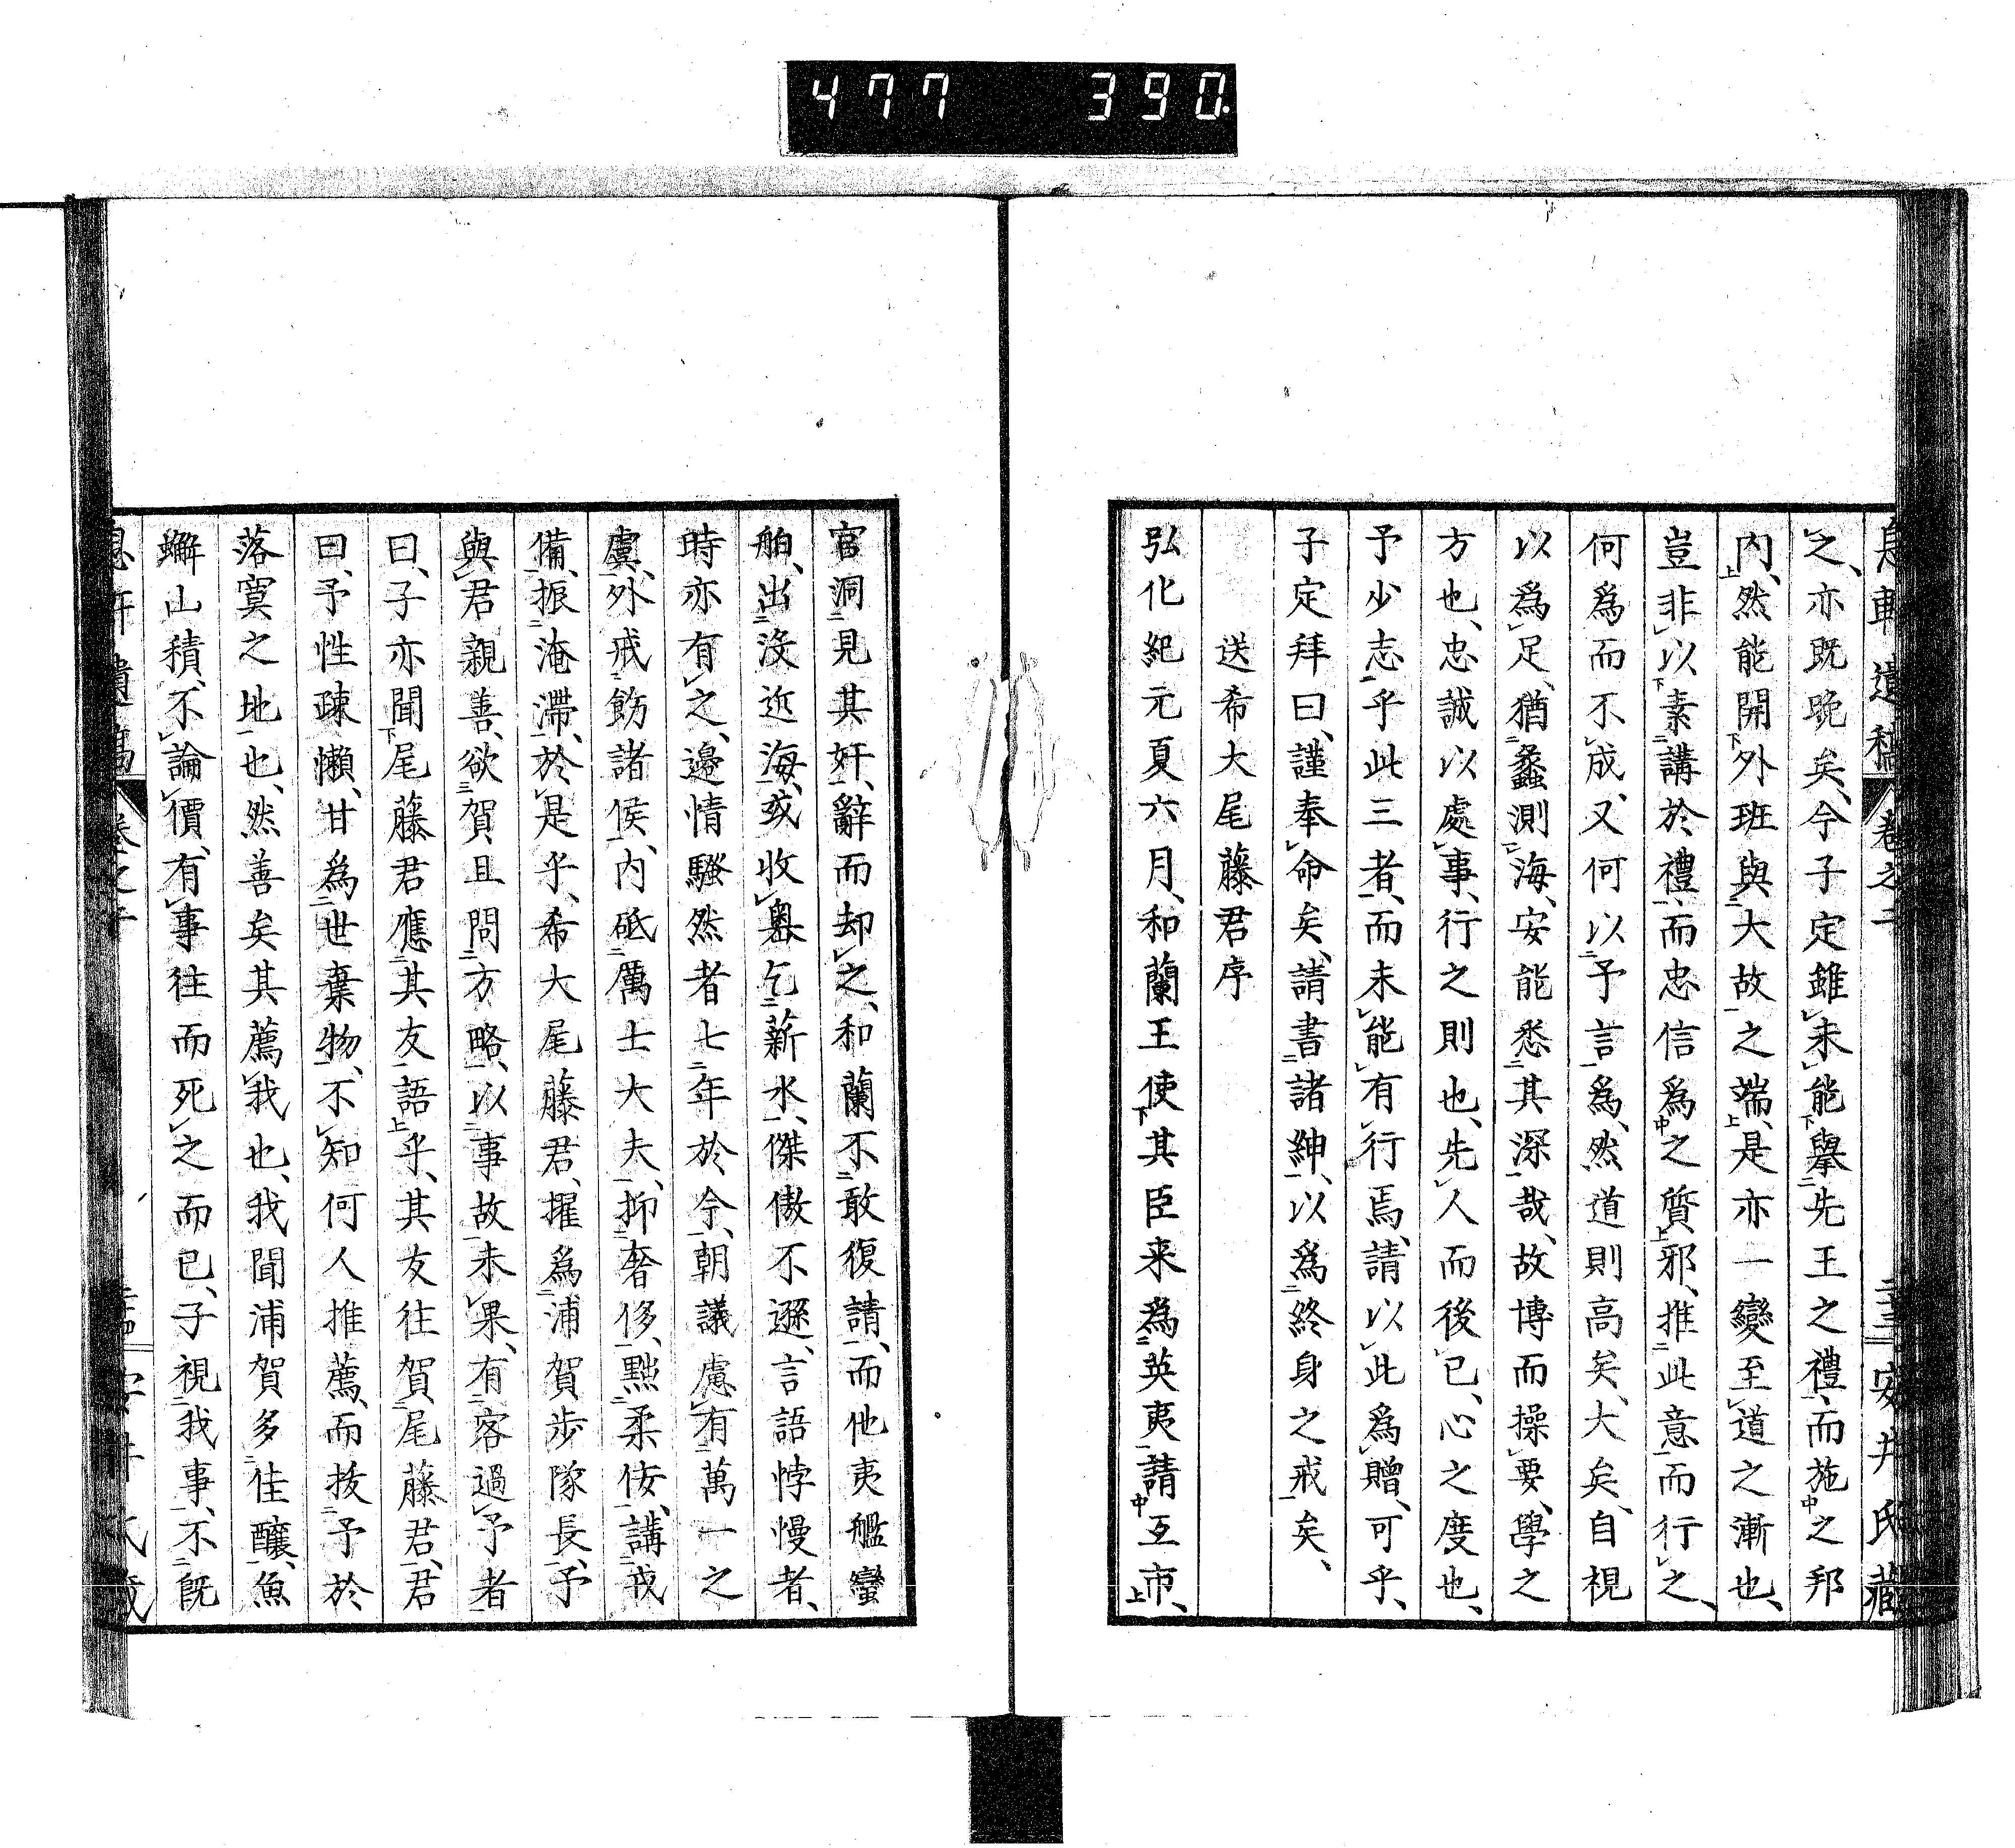 477 390.
息軒遺稿 卷之二 安井氏藏
之、亦既晩矣、今子定雖未能擧先王之禮、而施之邦
內、然能開外班與大故之端、是亦一變至道之漸也、
豈非以素講於禮、而忠信爲之質邪、推此意而行之、
何爲而不成、又何以予言爲、然道則高矣、大矣、自視
以爲足、猶蠡測海、安能悉其深哉、故博而操要、學之
方也、忠誠以處事、行之則也、先人而後已、心之度也、
予少志乎此三者、而未能有行焉、請以此爲贈、可乎、
子定拜曰、謹奉命矣、請書諸紳、以爲終身之戒矣、
送希大尾藤君序
弘化紀元夏六月、和蘭王使其臣来爲英夷請互市、
官洞見其奸、辭而却之、和蘭不敢復請、而他夷艦蠻
舶、出沒近海、或收嶴乞薪水、傑傲不遜、言語悖慢者、
時亦有之、邊情騷然者七年於今、朝議慮有萬一之
虞、外戒飭諸侯、內砥厲士大夫、抑奢侈、黜柔佞、講戎
備、振淹滯、於是乎、希大尾藤君、擢爲浦賀步隊長、予
與君親善、欲賀且問方略、以事故未果、有客過予者
曰、子亦聞尾藤君應其友語乎、其友往賀尾藤君、君
曰、予性疎懶、甘爲世棄物、不知何人推薦、而拔予於
落寞之地也、然善矣其薦我也、我聞浦賀多佳釀、魚
蠏山積、不論價、有事往而死之而已、子視我事、不旣
息軒遺稿 卷之二 安井氏藏